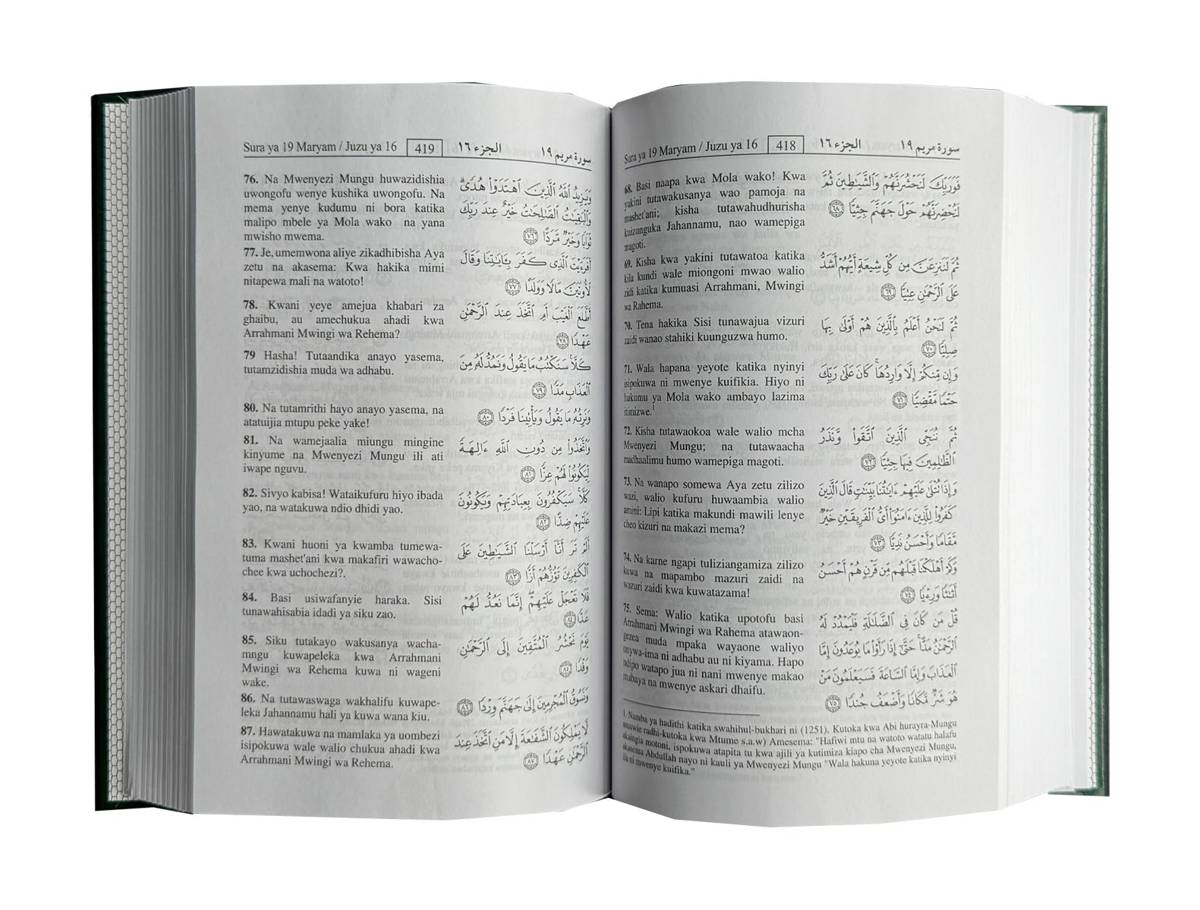 Sura ya 19 Maryam / Juzu ya 16 418 الجزء ١٦ سورة مريم ١٩
68. Basi naapa kwa Mola wako! Kwa
yakini tutawakusanya wao pamoja na
mashet'ani; kisha tutawahudhurisha
kuizunguka Jahannamu, nao wamepiga
magoti.
69. Kisha kwa yakini tutawatoa katika
kila kundi wale miongoni mwao walio
zidi katika kumuasi Arrahmani, Mwingi
wa Rahema.
70. Tena hakika Sisi tunawajua vizuri
zaidi wanao stahiki kuunguzwa humo.
71. Wala hapana yeyote katika nyinyi
isipokuwa ni mwenye kuifikia. Hiyo ni
hukumu ya Mola wako ambayo lazima
itimizwe.¹
72. Kisha tutawaokoa wale walio mcha
Mwenyezi Mungu; na tutawaacha
madhaalimu humo wamepiga magoti.
73. Na wanapo somewa Aya zetu zilizo
wazi, walio kufuru huwaambia walio
amini: Lipi katika makundi mawili lenye
cheo kizuri na makazi mema?
74. Na karne ngapi tuliziangamiza zilizo
kuwa na mapambo mazuri zaidi na
wazuri zaidi kwa kuwatazama!
75. Sema: Walio katika upotofu basi
Arrahmani Mwingi wa Rahema atawaon-
gezea muda mpaka wayaone waliyo
onywa-ima ni adhabu au ni kiyama. Hapo
ndipo watapo jua ni nani mwenye makao
mabaya na mwenye askari dhaifu.
فَوَرَبِّكَ لَنَحْشُرَنَّهُمْ وَالشَّيَاطِينَ ثُمَّ
لَنُحْضِرَنَّهُمْ حَوْلَ جَهَنَّمَ جِثِيًّا ٦٨
ثُمَّ لَنَنزِعَنَّ مِن كُلِّ شِيعَةٍ أَيُّهُمْ أَشَدُّ
عَلَى الرَّحْمَٰنِ عِتِيًّا ٦٩
ثُمَّ لَنَحْنُ أَعْلَمُ بِالَّذِينَ هُمْ أَوْلَىٰ بِهَا
صِلِيًّا ٧٠
وَإِن مِّنكُمْ إِلَّا وَارِدُهَا كَانَ عَلَىٰ رَبِّكَ
حَتْمًا مَّقْضِيًّا ٧١
ثُمَّ نُنَجِّي الَّذِينَ اتَّقَوا وَّنَذَرُ
الظَّالِمِينَ فِيهَا جِثِيًّا ٧٢
وَإِذَا تُتْلَىٰ عَلَيْهِمْ ءَايَاتُنَا بَيِّنَاتٍ قَالَ الَّذِينَ
كَفَرُوا لِلَّذِينَ ءَامَنُوا أَيُّ الْفَرِيقَيْنِ خَيْرٌ
مَّقَامًا وَأَحْسَنُ نَدِيًّا ٧٣
وَكَمْ أَهْلَكْنَا قَبْلَهُم مِّن قَرْنٍ هُمْ أَحْسَنُ
أَثَاثًا وَرِءْيًا ٧٤
قُلْ مَن كَانَ فِي الضَّلَالَةِ فَلْيَمْدُدْ لَهُ
الرَّحْمَٰنُ مَدًّا حَتَّىٰ إِذَا رَأَوْا مَا يُوعَدُونَ إِمَّا
الْعَذَابَ وَإِمَّا السَّاعَةَ فَسَيَعْلَمُونَ مَنْ
هُوَ شَرٌّ مَّكَانًا وَأَضْعَفُ جُندًا ٧٥
1. Namba ya hadithi katika swahihul-bukhari ni (1251). Kutoka kwa Abi hurayra-Mungu
amuwie radhi-kutoka kwa Mtume s.a.w) Amesema: "Hafiwi mtu na watoto watatu halafu
akaingia motoni, ispokuwa atapita tu kwa ajili ya kutimiza kiapo cha Mwenyezi Mungu,
akasema Abdullah nayo ni kauli ya Mwenyezi Mungu "Wala hakuna yeyote katika nyinyi
ila ni mwenye kuifika."
Sura ya 19 Maryam / Juzu ya 16 419 الجزء ١٦ سورة مريم ١٩
76. Na Mwenyezi Mungu huwazidishia
uwongofu wenye kushika uwongofu. Na
mema yenye kudumu ni bora katika
malipo mbele ya Mola wako na yana
mwisho mwema.
77. Je, umemwona aliye zikadhibisha Aya
zetu na akasema: Kwa hakika mimi
nitapewa mali na watoto!
78. Kwani yeye amejua khabari za
ghaibu, au amechukua ahadi kwa
Arrahmani Mwingi wa Rehema?
79 Hasha! Tutaandika anayo yasema,
tutamzidishia muda wa adhabu.
80. Na tutamrithi hayo anayo yasema, na
atatuijia mtupu peke yake!
81. Na wamejaalia miungu mingine
kinyume na Mwenyezi Mungu ili ati
iwape nguvu.
82. Sivyo kabisa! Wataikufuru hiyo ibada
yao, na watakuwa ndio dhidi yao.
83. Kwani huoni ya kwamba tumewa-
tuma mashet'ani kwa makafiri wawacho-
chee kwa uchochezi?.
84. Basi usiwafanyie haraka. Sisi
tunawahisabia idadi ya siku zao.
85. Siku tutakayo wakusanya wacha-
mngu kuwapeleka kwa Arrahmani
Mwingi wa Rehema kuwa ni wageni
wake.
86. Na tutawaswaga wakhalifu kuwape-
leka Jahannamu hali ya kuwa wana kiu.
87. Hawatakuwa na mamlaka ya uombezi
isipokuwa wale walio chukua ahadi kwa
Arrahmani Mwingi wa Rehema.
وَيَزِيدُ اللَّهُ الَّذِينَ اهْتَدَوْا هُدًى
وَالْبَاقِيَاتُ الصَّالِحَاتُ خَيْرٌ عِندَ رَبِّكَ
ثَوَابًا وَخَيْرٌ مَّرَدًّا ٧٦
أَفَرَءَيْتَ الَّذِي كَفَرَ بِـَٔايَاتِنَا وَقَالَ
لَأُوتَيَنَّ مَالًا وَوَلَدًا ٧٧
أَطَّلَعَ الْغَيْبَ أَمِ اتَّخَذَ عِندَ الرَّحْمَٰنِ
عَهْدًا ٧٨
كَلَّا سَنَكْتُبُ مَا يَقُولُ وَنَمُدُّ لَهُ مِنَ
الْعَذَابِ مَدًّا ٧٩
وَنَرِثُهُ مَا يَقُولُ وَيَأْتِينَا فَرْدًا ٨٠
وَاتَّخَذُوا مِن دُونِ اللَّهِ ءَالِهَةً
لِّيَكُونُوا لَهُمْ عِزًّا ٨١
كَلَّا سَيَكْفُرُونَ بِعِبَادَتِهِمْ وَيَكُونُونَ
عَلَيْهِمْ ضِدًّا ٨٢
أَلَمْ تَرَ أَنَّا أَرْسَلْنَا الشَّيَاطِينَ عَلَى
الْكَافِرِينَ تَؤُزُّهُمْ أَزًّا ٨٣
فَلَا تَعْجَلْ عَلَيْهِمْ إِنَّمَا نَعُدُّ لَهُمْ
عَدًّا ٨٤
يَوْمَ نَحْشُرُ الْمُتَّقِينَ إِلَى الرَّحْمَٰنِ
وَفْدًا ٨٥
وَنَسُوقُ الْمُجْرِمِينَ إِلَىٰ جَهَنَّمَ وِرْدًا ٨٦
لَّا يَمْلِكُونَ الشَّفَاعَةَ إِلَّا مَنِ اتَّخَذَ عِندَ
الرَّحْمَٰنِ عَهْدًا ٨٧